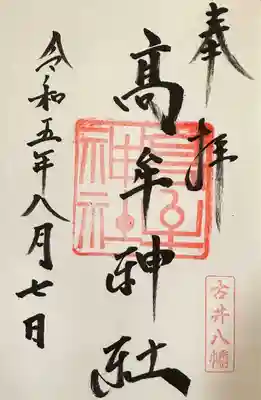 奉拝
古井八幡
高牟神社
高牟神社
令和五年八月七日